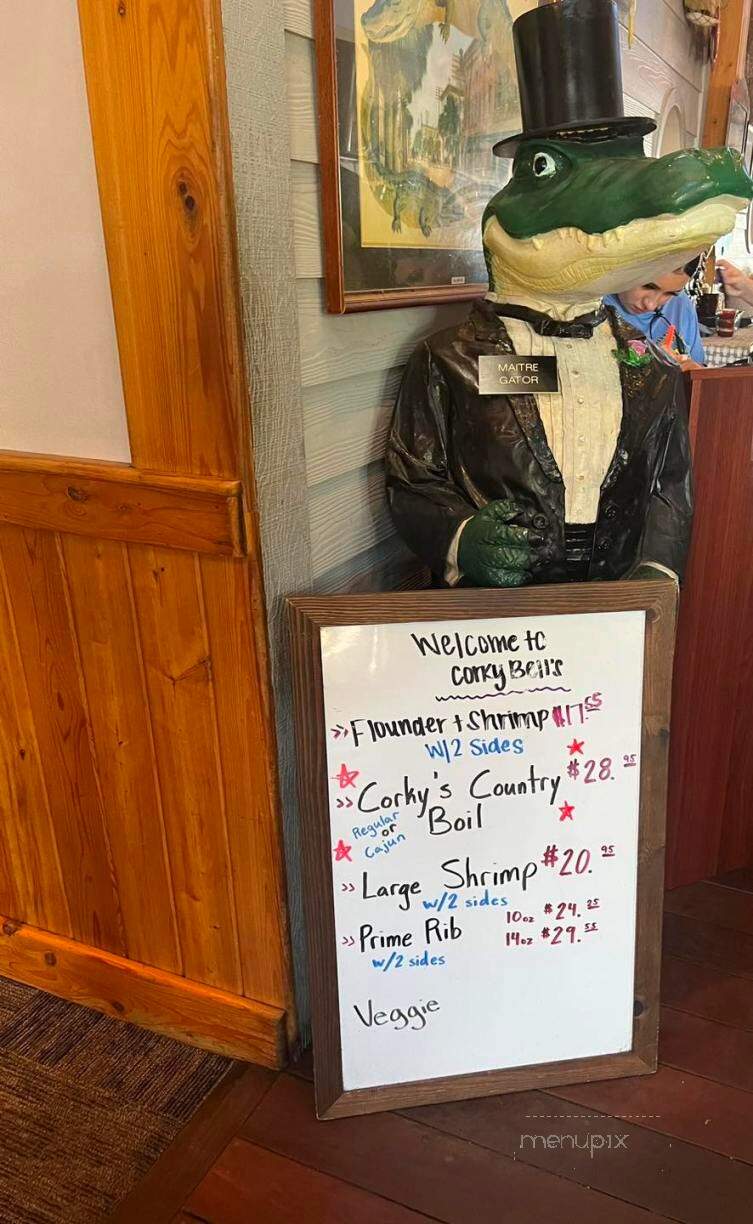 MAITRE
GATOR
Welcome to
Corky Bell's
» Flounder + Shrimp $17.55
w/2 Sides
» Corky's Country $28.95
Regular
or
Cajun
Boil
» Large Shrimp $20.95
w/2 sides
» Prime Rib 10oz $24.25
14oz $29.55
w/2 sides
Veggie
menupix